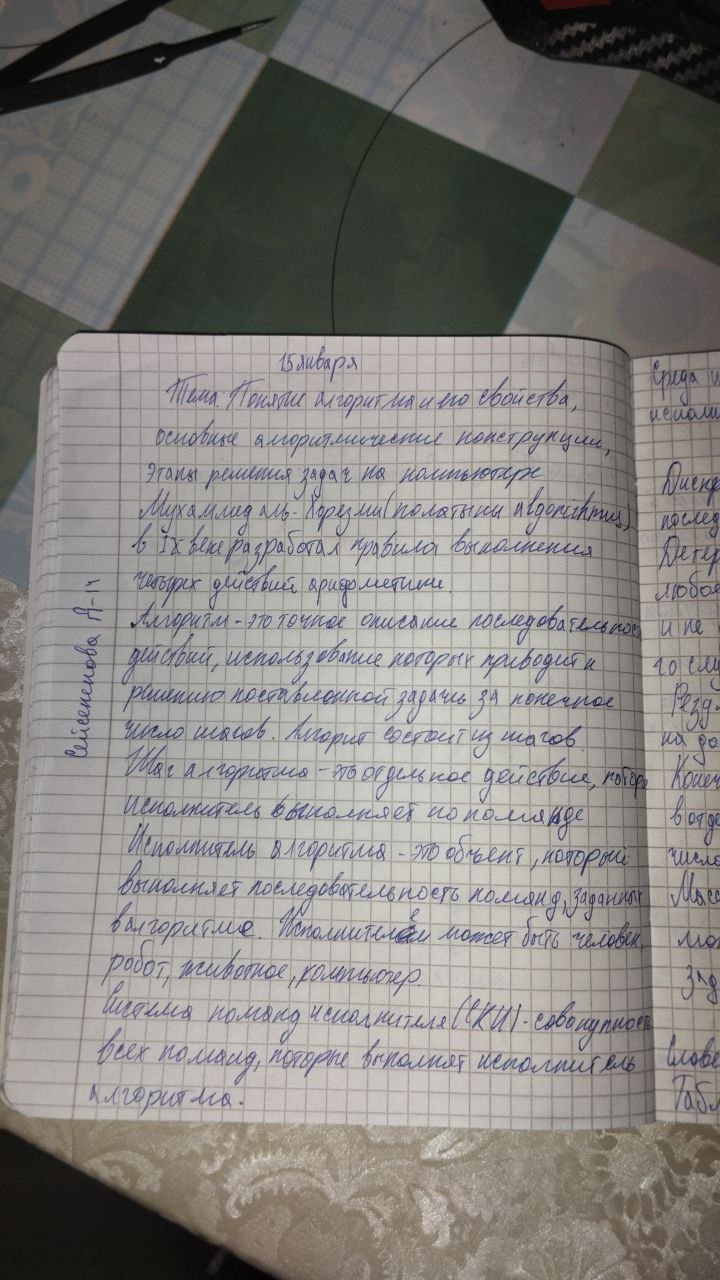 15 января
Тема. Понятие алгоритма и его свойства,
основные алгоритмические конструкции,
этапы решения задач на компьютере
Мухаммед аль-Хорезми (по латыни
в IX веке разработал правила выполнения
четырех действий арифметики.
Алгоритм - это точное описание последовательност
действий, использование которых приводит к
решению поставленной задачи за конечное
число шагов. Алгорит состоит из шагов.
Шаг алгоритма - это отдельное действие, которо
исполнитель выполняет по команде
Исполнитель алгоритма - это объект, который
выполняет последовательность команд, заданных
в алгоритме. Исполнителем может быть человек,
робот, животное, компьютер.
Система команд исполнителя (СКИ) - совокупность
всех команд, которые выполнят исполнитель
алгоритма.
Сейсекенова А-14
Среда и
исполн
Дискр
послед
Детер
любое
и не
го слу
Резул
на до
Конеч
в отде
число
Масс
мож
зад
Слове
Табл